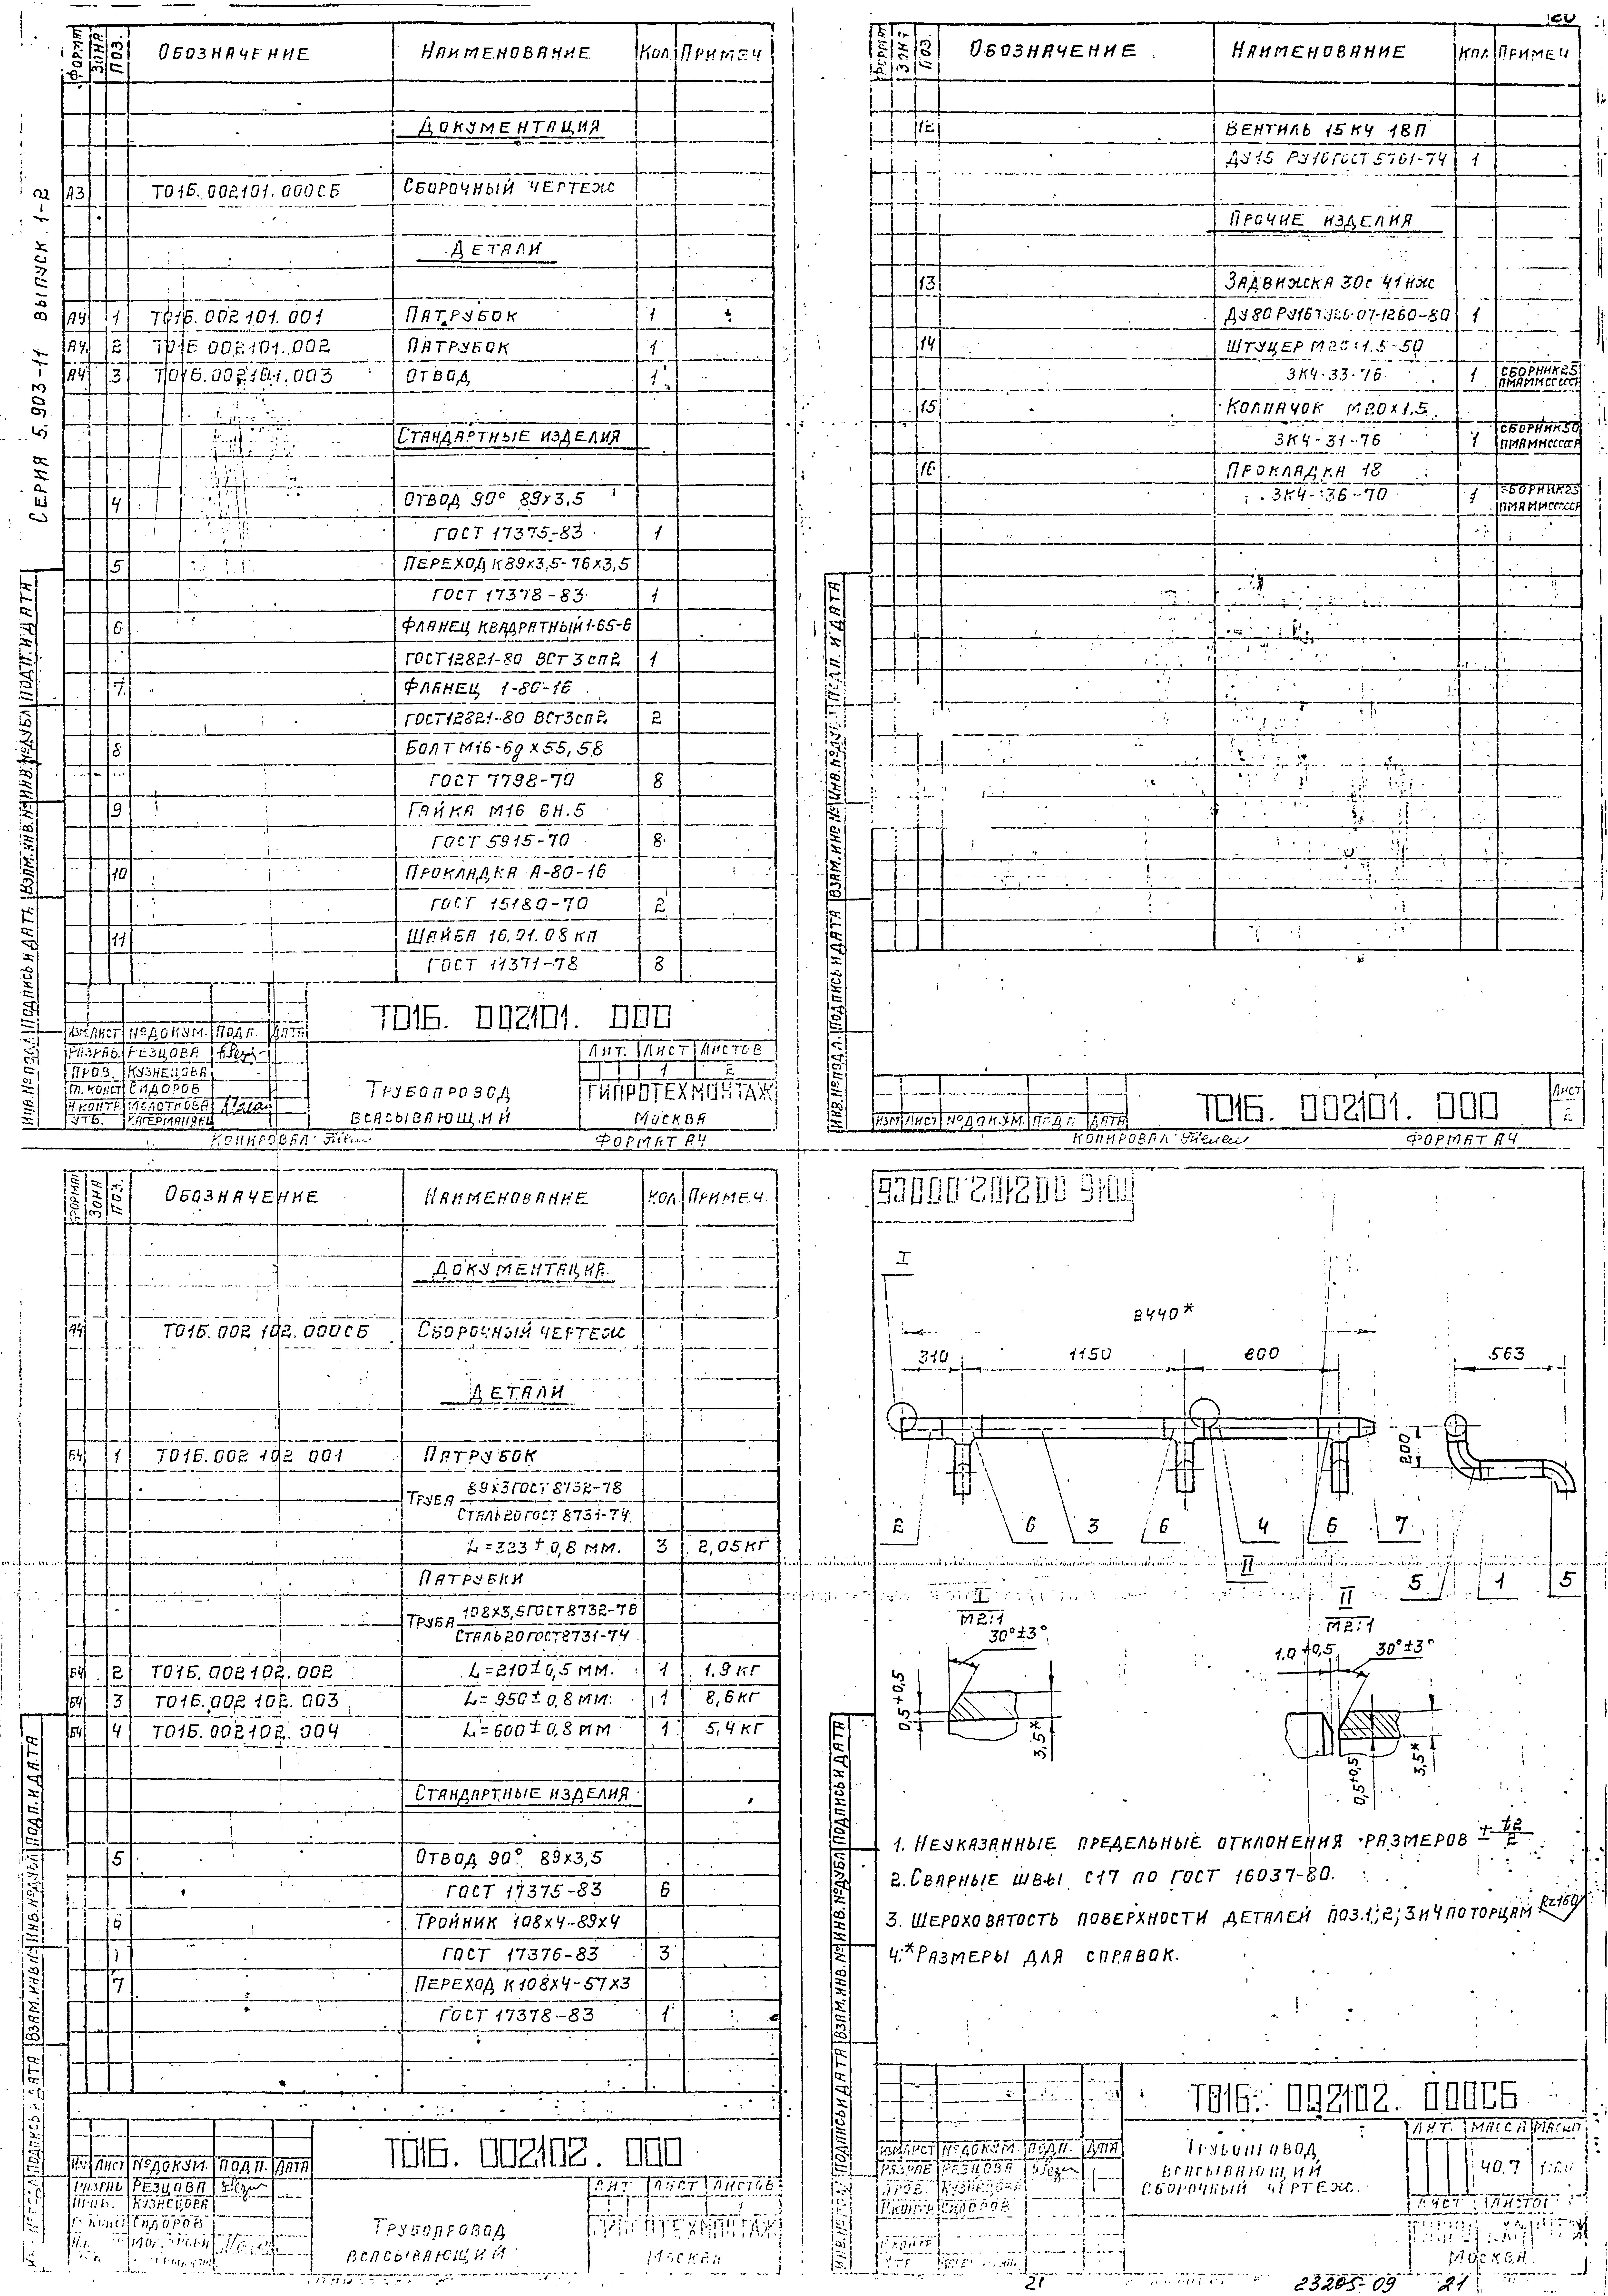 СЕРИЯ 5.903-11 ВЫПУСК 1-2
ФОРМАТ ЗОНА ПОЗ. ОБОЗНАЧЕНИЕ НАИМЕНОВАНИЕ КОЛ. ПРИМЕЧ
ДОКУМЕНТАЦИЯ
А3 Т01Б.002101.000СБ СБОРОЧНЫЙ ЧЕРТЕЖ
ДЕТАЛИ
А4 1 Т01Б.002101.001 ПАТРУБОК 1
А4 2 Т01Б 002101.002 ПАТРУБОК 1
А4 3 Т01Б.002101.003 ОТВОД 1
СТАНДАРТНЫЕ ИЗДЕЛИЯ
4 ОТВОД 90° 89х3,5
ГОСТ 17375-83 1
5 ПЕРЕХОД К89х3,5-76х3,5
ГОСТ 17378-83 1
6 ФЛАНЕЦ КВАДРАТНЫЙ 1-65-6
ГОСТ12821-80 ВСт3сп2 1
7 ФЛАНЕЦ 1-80-16
ГОСТ12821-80 ВСт3сп2 2
8 БОЛТ М16-6g х55,58
ГОСТ 7798-70 8
9 ГАЙКА М16 6Н.5
ГОСТ 5915-70 8
10 ПРОКЛАДКА А-80-16
ГОСТ 15180-70 2
11 ШАЙБА 16.01.08 КП
ГОСТ 11371-78 8
Т01Б. 002101. 000
ИЗМ ЛИСТ №ДОКУМ. ПОДП. ДАТА
РАЗРАБ. РЕЗЦОВА
ПРОВ. КУЗНЕЦОВА
ГЛ. КОНСТ СИДОРОВ
Н.КОНТР МОЛОТКОВА
УТВ.
ТРУБОПРОВОД
ВСАСЫВАЮЩИЙ
ЛИТ. ЛИСТ ЛИСТОВ
1 2
ГИПРОТЕХМОНТАЖ
МОСКВА
КОПИРОВАЛ ФОРМАТ А4
ИНВ.№ПОДЛ. ПОДПИСЬ И ДАТА ВЗАМ.ИНВ.№ ИНВ.№ДУБЛ ПОДП. И ДАТА
ФОРМАТ ЗОНА ПОЗ. ОБОЗНАЧЕНИЕ НАИМЕНОВАНИЕ КОЛ ПРИМЕЧ
12 ВЕНТИЛЬ 15КЧ 18П
ДУ15 РУ16 ГОСТ 5761-74 1
ПРОЧИЕ ИЗДЕЛИЯ
13 ЗАДВИЖКА 30с 41нж
ДУ80 РУ16 ТУ26-07-1260-80 1
14 ШТУЦЕР М20х1.5-50
ЗК4-33-76 1 СБОРНИК25
15 КОЛПАЧОК М20х1.5
ЗК4-31-76 1 СБОРНИК50
16 ПРОКЛАДКА 18
ЗК4-36-70 1 СБОРНИК25
Т01Б. 002101. 000
ЛИСТ
2
ИЗМ ЛИСТ №ДОКУМ. ПОДП ДАТА
КОПИРОВАЛ ФОРМАТ А4
ИНВ.№ПОДЛ. ПОДПИСЬ И ДАТА ВЗАМ.ИНВ.№ ПОДП. И ДАТА
ФОРМАТ ЗОНА ПОЗ. ОБОЗНАЧЕНИЕ НАИМЕНОВАНИЕ КОЛ ПРИМЕЧ.
ДОКУМЕНТАЦИЯ
А4 Т01Б.002 102.000СБ СБОРОЧНЫЙ ЧЕРТЕЖ
ДЕТАЛИ
Б4 1 Т01Б.002 102 001 ПАТРУБОК
ТРУБА 89х3 ГОСТ 8732-78
СТАЛЬ 20 ГОСТ 8731-74
L=323±0,8 ММ. 3 2,05КГ
ПАТРУБКИ
ТРУБА 108х3,5 ГОСТ 8732-78
СТАЛЬ 20 ГОСТ 8731-74
Б4 2 Т01Б.002102.002 L=210±0,5 ММ. 1 1,9 КГ
Б4 3 Т01Б.002 102.003 L=950±0,8 ММ. 1 8,6КГ
Б4 4 Т01Б.002102.004 L=600±0,8 ММ 1 5,4 КГ
СТАНДАРТНЫЕ ИЗДЕЛИЯ
5 ОТВОД 90° 89х3,5
ГОСТ 17375-83 6
ТРОЙНИК 108х4-89х4
ГОСТ 17376-83 3
7 ПЕРЕХОД К108х4-57х3
ГОСТ 17378-83 1
Т01Б. 002102. 000
ЛИСТ №ДОКУМ. ПОДП. ДАТА
РАЗРАБ РЕЗЦОВА
КУЗНЕЦОВА
СИДОРОВ
ТРУБОПРОВОД
ВСАСЫВАЮЩИЙ
ЛИТ ЛИСТ ЛИСТОВ
1
ГИПРОТЕХМОНТАЖ
МОСКВА
Т01Б 002102.000СБ
I
2440*
310 1150 600 563
200
2 6 3 6 4 6 7
II
5 1 5
I
М2:1
30°±3°
0,5+0,5
3,5*
II
М2:1
1.0+0,5 30°±3°
0,5+0,5
3,5*
1. НЕУКАЗАННЫЕ ПРЕДЕЛЬНЫЕ ОТКЛОНЕНИЯ РАЗМЕРОВ ± t2/2
2. СВАРНЫЕ ШВЫ С17 ПО ГОСТ 16037-80.
3. ШЕРОХОВАТОСТЬ ПОВЕРХНОСТИ ДЕТАЛЕЙ ПОЗ.1;2;3И4 ПО ТОРЦАМ Rz160
4.*РАЗМЕРЫ ДЛЯ СПРАВОК.
Т01Б. 002102. 000СБ
ИЗМ ЛИСТ №ДОКУМ. ПОДП. ДАТА
РАЗРАБ РЕЗЦОВА
ПРОВ. КУЗНЕЦОВА
СИДОРОВ
ТРУБОПРОВОД
ВСАСЫВАЮЩИЙ
СБОРОЧНЫЙ ЧЕРТЕЖ.
ЛИТ. МАССА МАСШТ
40,7
ЛИСТ ЛИСТОВ
МОСКВА
21 23205-09 21